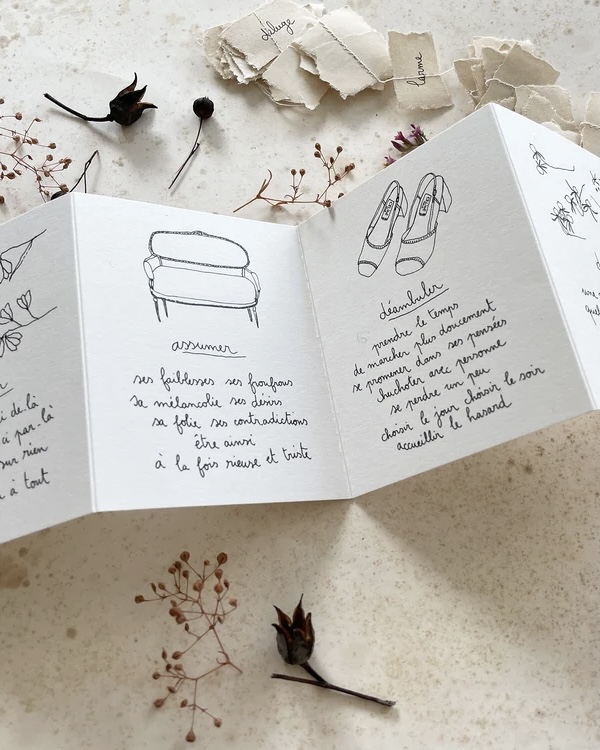 déluge
larme
i de-là
i par-là
sur rien
à tout
assumer
ses faiblesses ses froufrous
sa mélancolie ses désirs
sa folie ses contradictions
être ainsi
à la fois rieuse et triste
déambuler
prendre le temps
de marcher plus doucement
se promener dans ses pensées
chuchoter avec personne
se perdre un peu
choisir le jour choisir le soir
accueillir le hasard